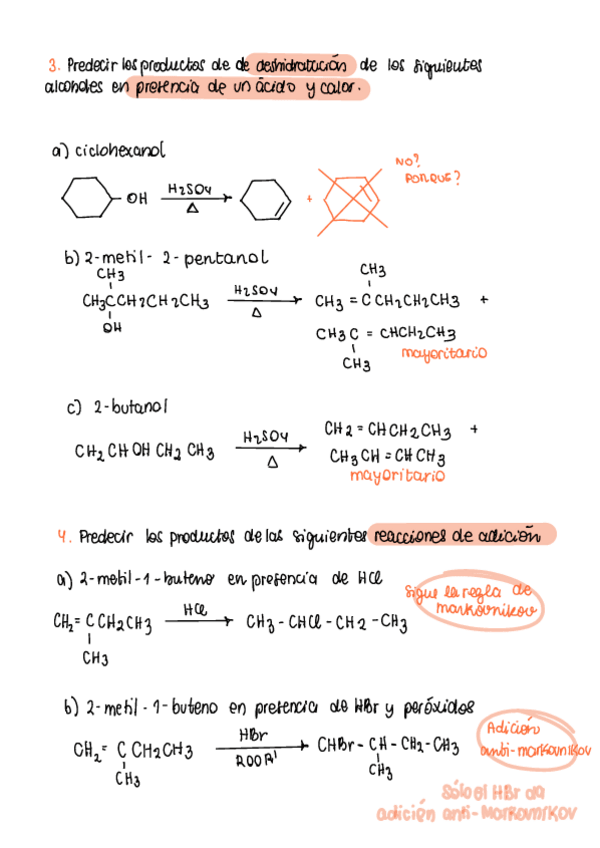 3. Predecir los productos de de deshidratación de los siguientes
alcoholes en presencia de un ácido y calor.
a) ciclohexanol
OH H2SO4 Δ + NO?
PORQUE?
b) 2-metil - 2-pentanol
CH3
CH3CCH2CH2CH3 H2SO4 Δ CH3 = CCH2CH2CH3 +
OH
CH3
CH3C = CHCH2CH3
CH3
mayoritario
c) 2-butanol
CH2CHOHCH2CH3 H2SO4 Δ CH2 = CHCH2CH3 +
CH3CH = CHCH3
mayoritario
4. Predecir los productos de las siguientes reacciones de adición
a) 2-metil-1-buteno en presencia de HCl
Sigue la regla de
markovnikov
CH2= CCH2CH3 HCl CH3 - CHCl - CH2 - CH3
CH3
b) 2-metil-1-buteno en presencia de HBr y peróxidos
Adición
anti-markovnikov
CH2= CCH2CH3 HBr ROOR' CHBr - CH - CH2 - CH3
CH3 CH3
Sólo el HBr da
adición anti-Markovnikov